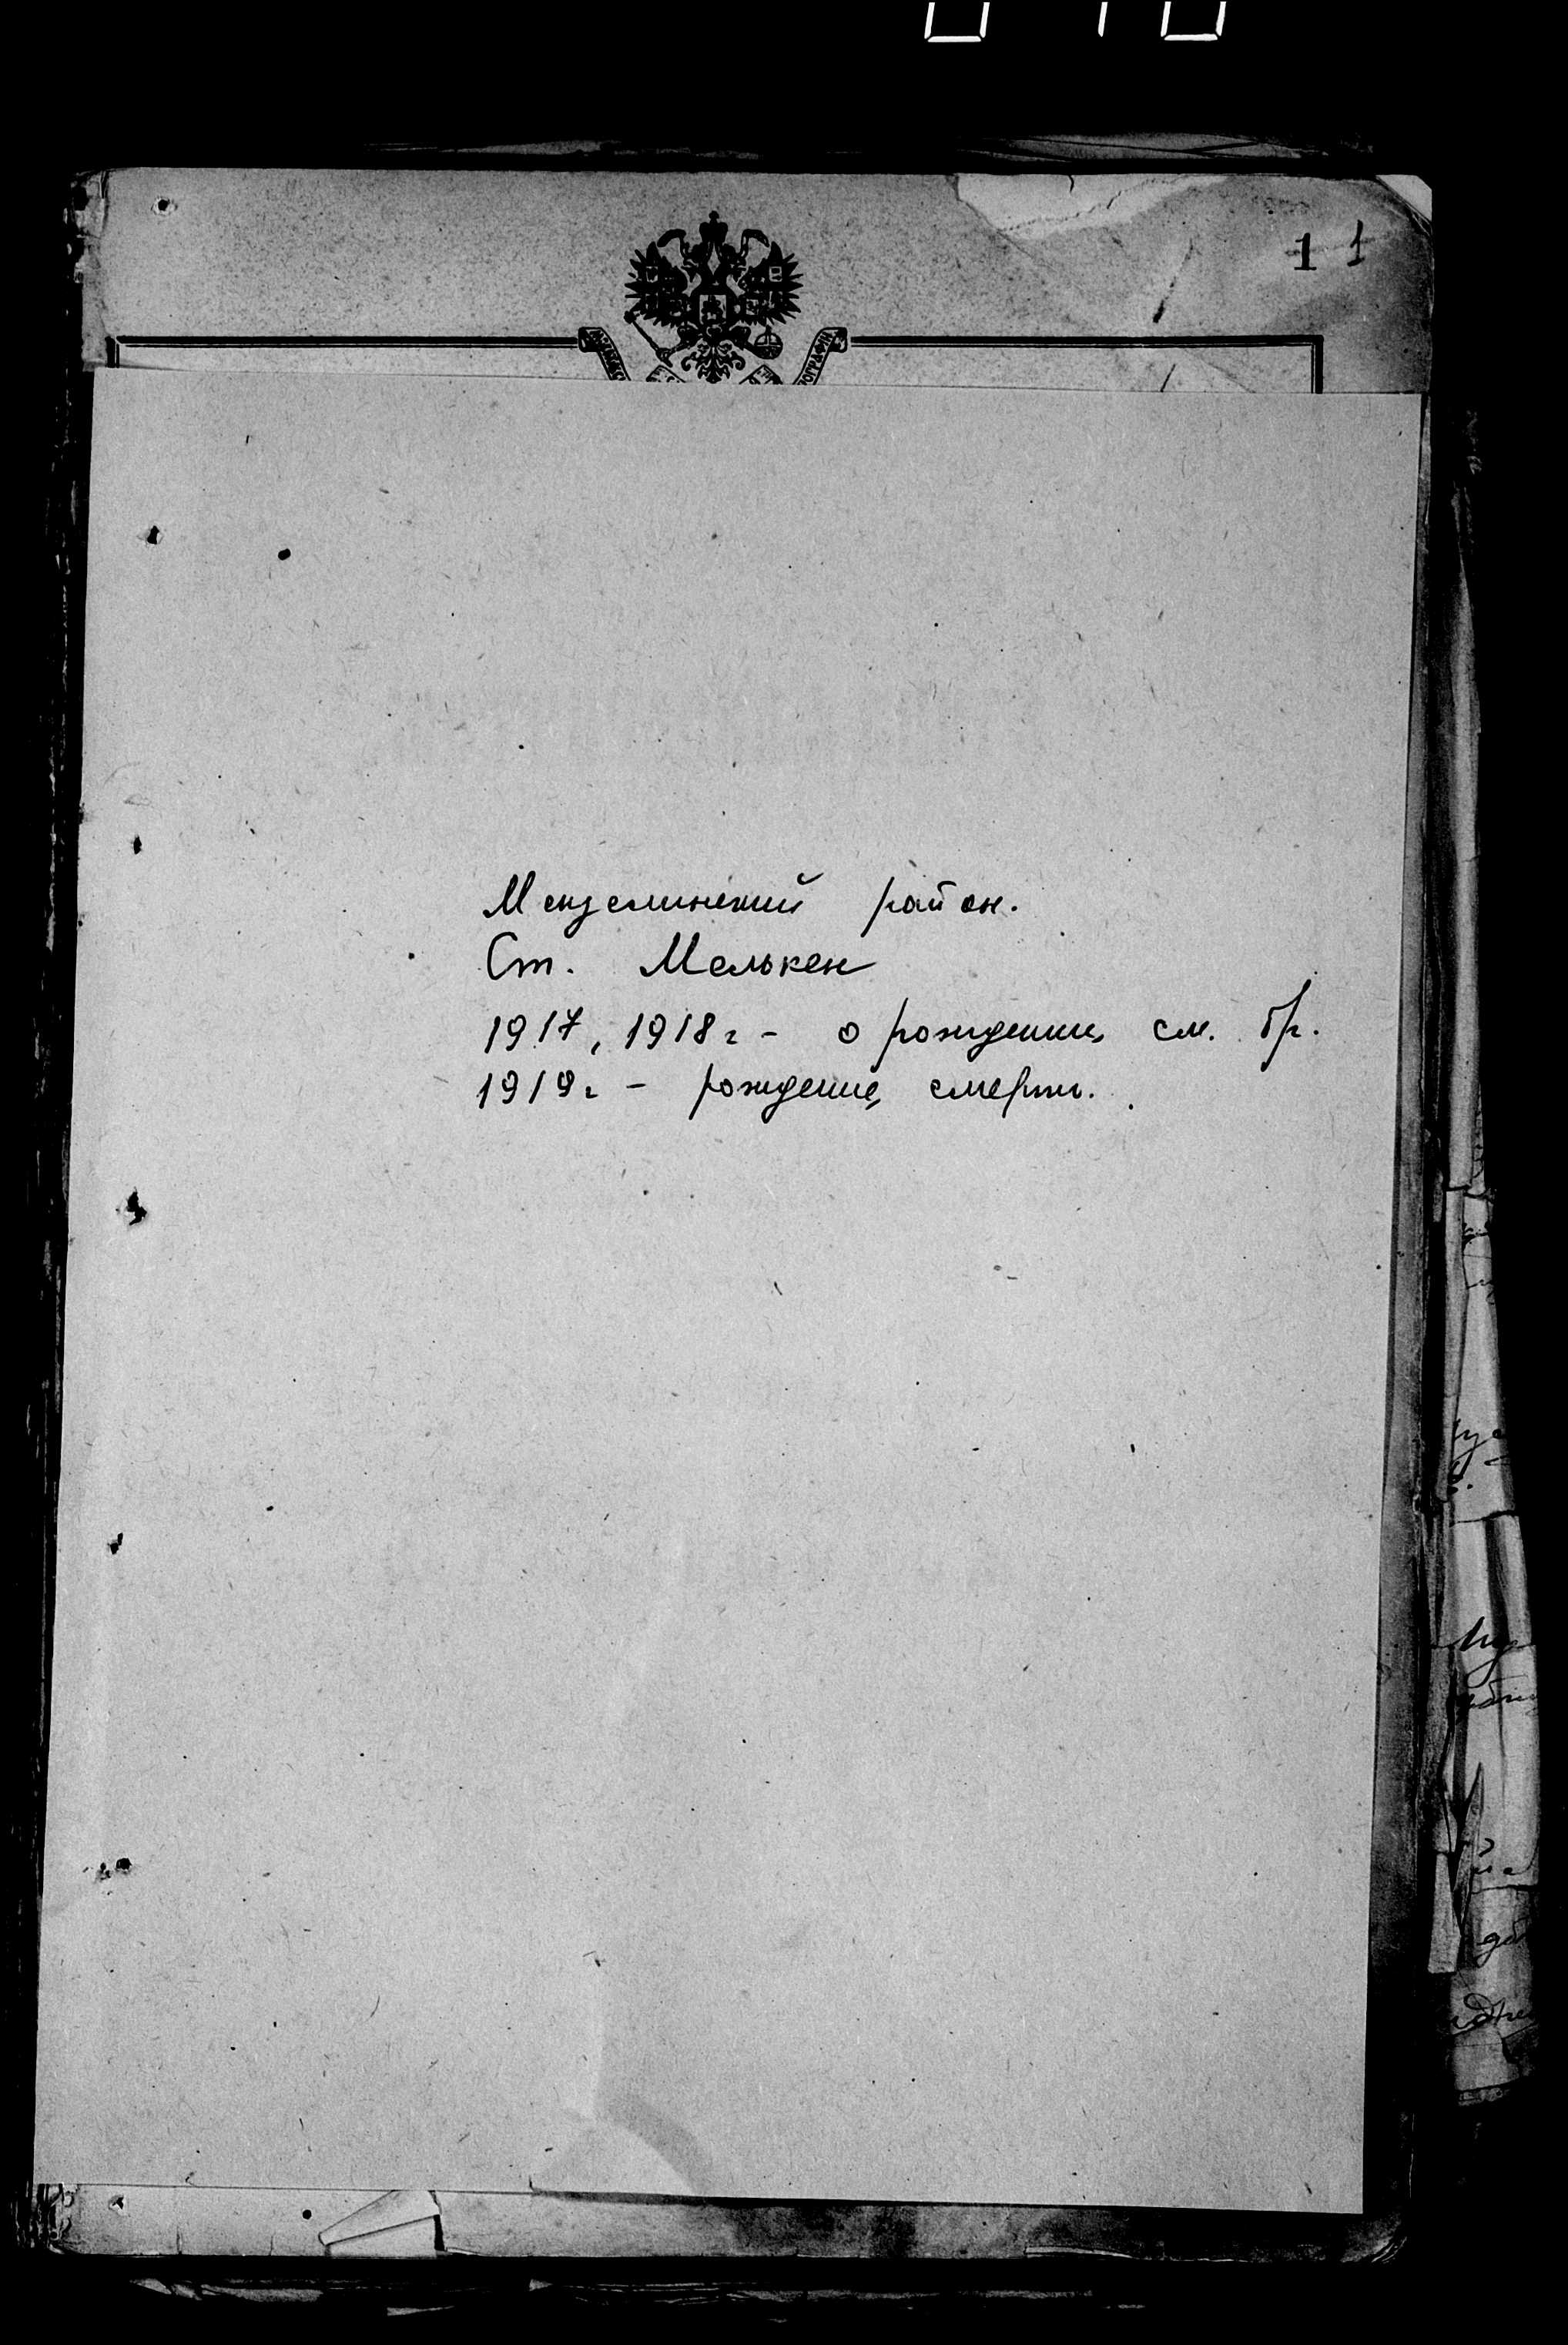 1 1
Мензелинский район.
Ст. Мелькен
1917, 1918 г - о рождении, см. бр.
1919 г - рождение, смерти.